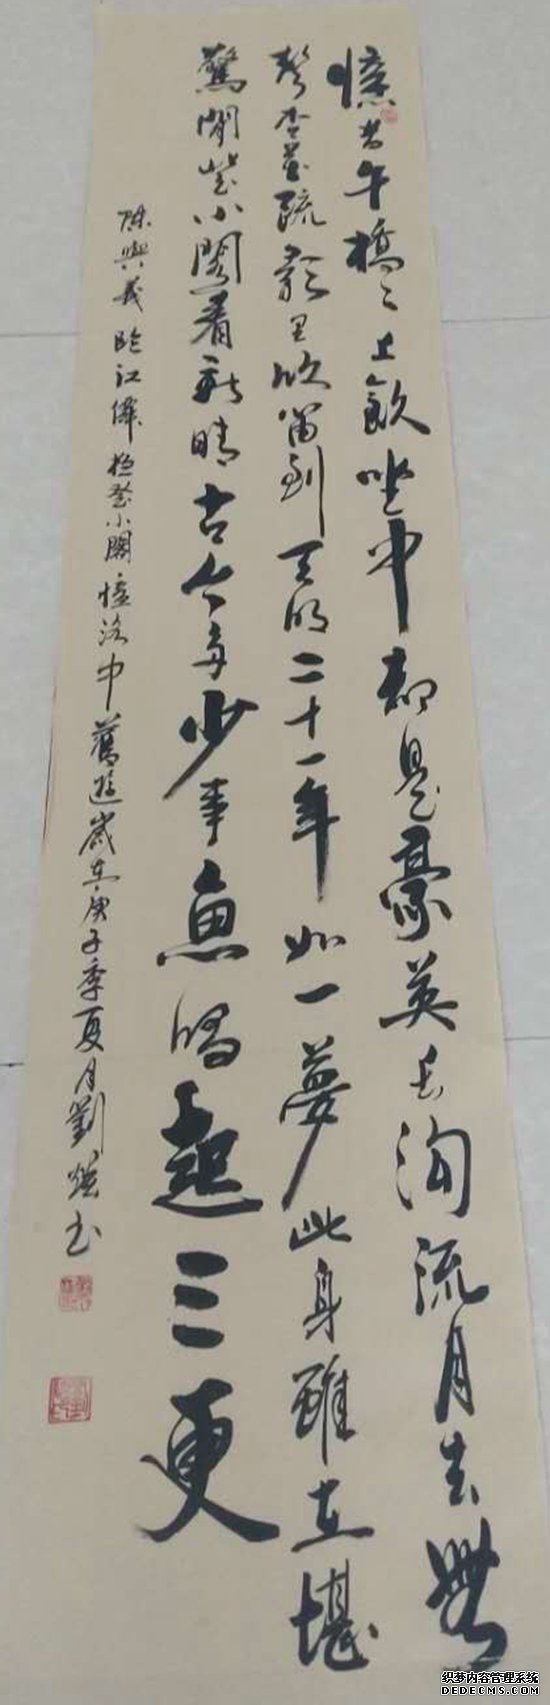 憶昔午橋〻上飲坐中都是豪英长沟流月去無
聲杏花疏影里吹笛到天明二十一年如一夢此身雖在堪
驚閒登小閣看新晴古今多少事魚唱起三更
陳與義臨江僊夜登小閣憶洛中舊遊歲在庚子季夏月劉书
织梦内容管理系统
DEDECMS.COM